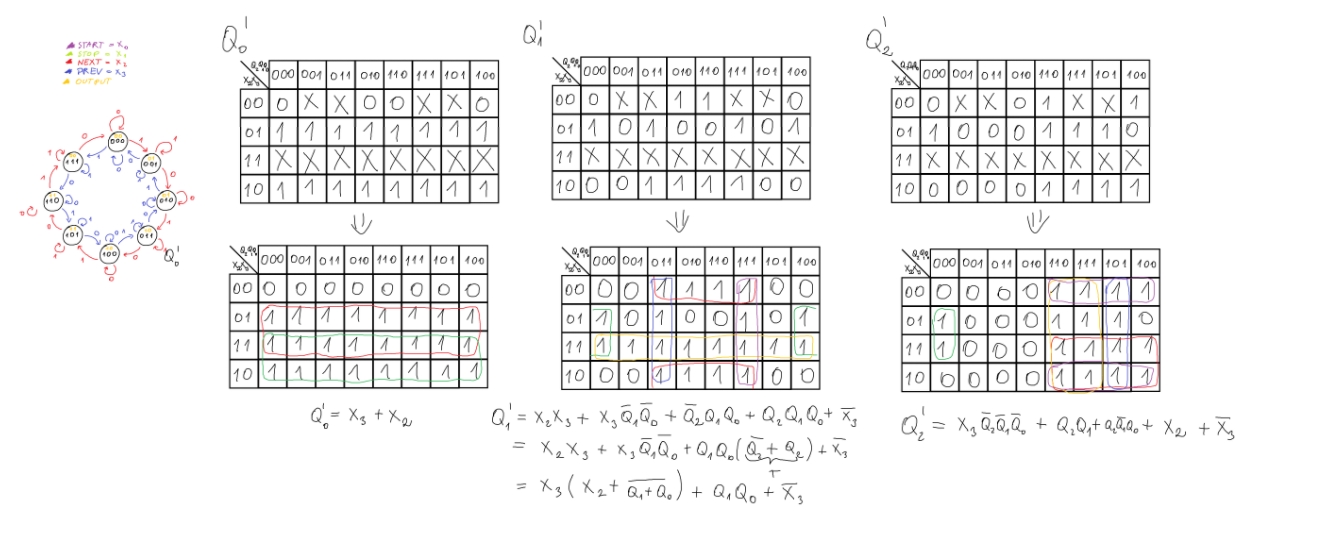 START = X₀
STOP = X₁
NEXT = X₂
PREV = X₃
OUTPUT
000
001
010
011
100
101
110
111
Q₀'
Q₀'
X₂X₃ Q₂Q₁Q₀ 000 001 011 010 110 111 101 100
00 0 X X 0 0 X X 0
01 1 1 1 1 1 1 1 1
11 X X X X X X X X
10 1 1 1 1 1 1 1 1
⇓
X₂X₃ Q₂Q₁Q₀ 000 001 011 010 110 111 101 100
00 0 0 0 0 0 0 0 0
01 1 1 1 1 1 1 1 1
11 1 1 1 1 1 1 1 1
10 1 1 1 1 1 1 1 1
Q₀' = X₃ + X₂
Q₁'
X₂X₃ Q₂Q₁Q₀ 000 001 011 010 110 111 101 100
00 0 X X 1 1 X X 0
01 1 0 1 0 0 1 0 1
11 X X X X X X X X
10 0 0 1 1 1 1 0 0
⇓
X₂X₃ Q₂Q₁Q₀ 000 001 011 010 110 111 101 100
00 0 0 1 1 1 1 0 0
01 1 0 1 0 0 1 0 1
11 1 1 1 1 1 1 1 1
10 0 0 1 1 1 1 0 0
Q₁' = X₂X₃ + X₃Q̅₁Q̅₀ + Q̅₂Q₁Q₀ + Q₂Q₁Q₀ + X̅₃
= X₂X₃ + X₃Q̅₁Q̅₀ + Q₁Q₀(Q̅₂ + Q₂) + X̅₃
T
= X₃(X₂ + Q̅₁̅+̅Q̅₀̅) + Q₁Q₀ + X̅₃
Q₂'
X₂X₃ Q₂Q₁Q₀ 000 001 011 010 110 111 101 100
00 0 X X 0 1 X X 1
01 1 0 0 0 1 1 1 0
11 X X X X X X X X
10 0 0 0 0 1 1 1 1
⇓
X₂X₃ Q₂Q₁Q₀ 000 001 011 010 110 111 101 100
00 0 0 0 0 1 1 1 1
01 1 0 0 0 1 1 1 0
11 1 0 0 0 1 1 1 1
10 0 0 0 0 1 1 1 1
Q₂' = X₃Q̅₂Q̅₁Q̅₀ + Q₂Q₁ + Q₂Q̅₁Q₀ + X₂ + X̅₃